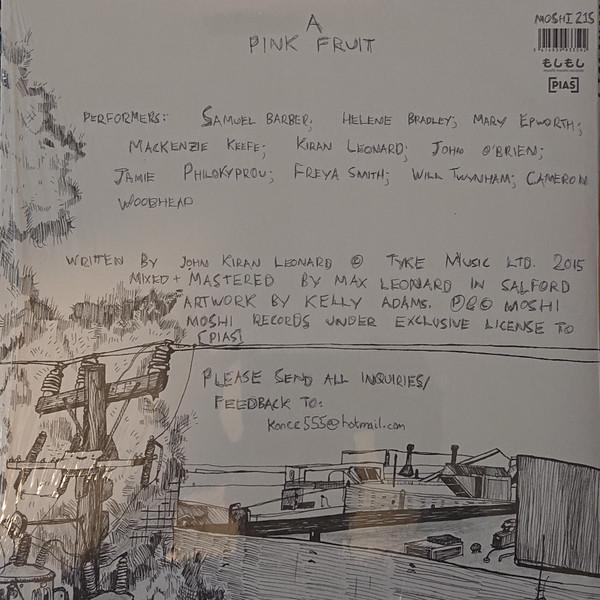 A
PINK FRUIT
MOSHI 215
もしもし
[PIAS]
PERFORMERS: SAMUEL BARBER; HELENE BRADLEY; MARY EPWORTH;
MACKENZIE KEEFE; KIRAN LEONARD; JOHN O'BRIEN;
JAMIE PHILOKYPROU; FREYA SMITH; WILL TWYNHAM; CAMERON
WOODHEAD
WRITTEN BY JOHN KIRAN LEONARD © TYKE MUSIC LTD. 2015
MIXED + MASTERED BY MAX LEONARD IN SALFORD
ARTWORK BY KELLY ADAMS. ℗&© MOSHI
MOSHI RECORDS UNDER EXCLUSIVE LICENSE TO
[PIAS]
PLEASE SEND ALL INQUIRIES/
FEEDBACK TO:
konce555@hotmail.com